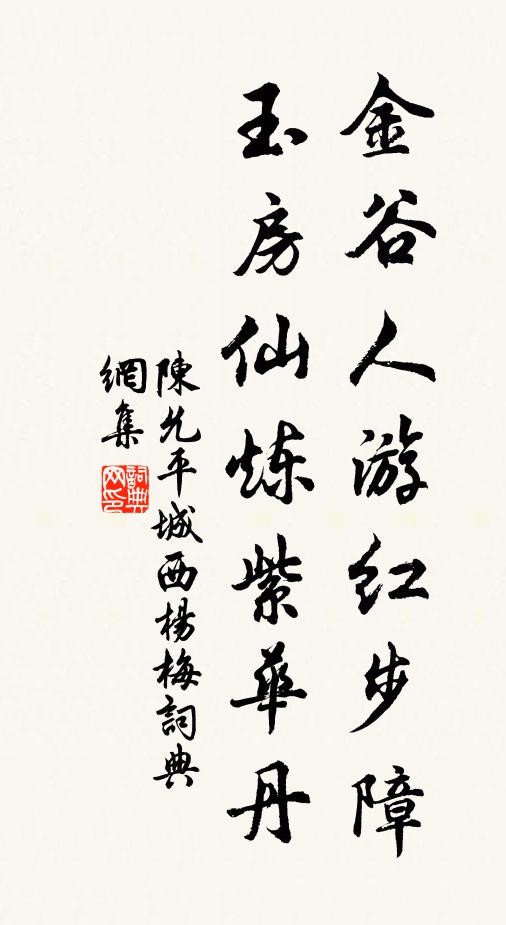 金谷人游红步障
玉房仙炼紫华丹
陳允平城西楊梅詞典
網集
詞典
网印